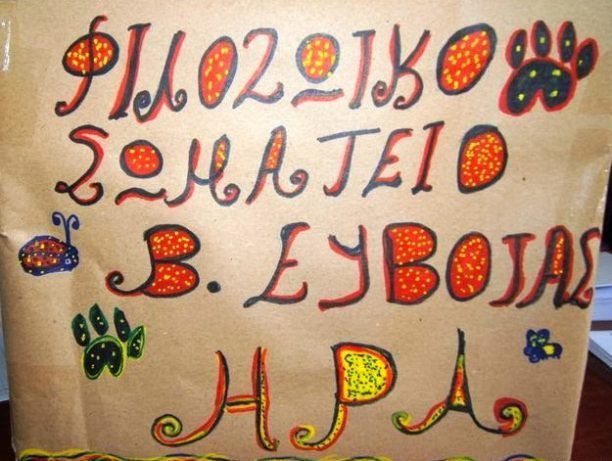 ΦΙΛΟΖΩΙΚΟ
ΣΩΜΑΤΕΙΟ
Β. ΕΥΒΟΙΑΣ
ΗΡΑ